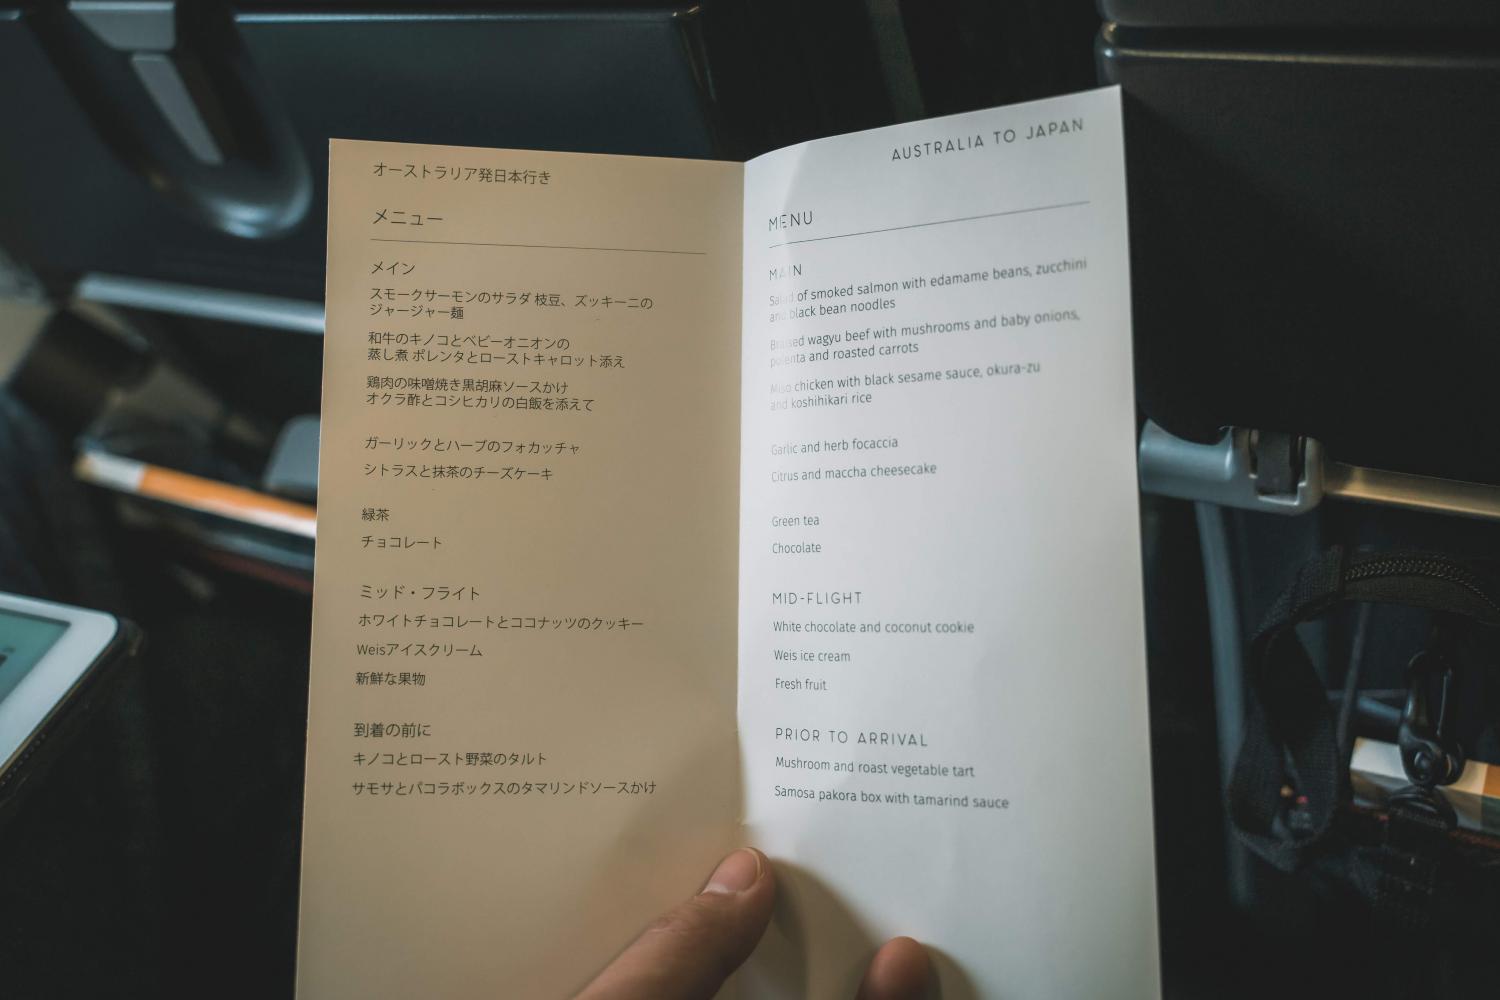 オーストラリア発日本行き
メニュー
メイン
スモークサーモンのサラダ 枝豆、ズッキーニの
ジャージャー麺
和牛のキノコとベビーオニオンの
蒸し煮 ポレンタとローストキャロット添え
鶏肉の味噌焼き黒胡麻ソースかけ
オクラ酢とコシヒカリの白飯を添えて
ガーリックとハーブのフォカッチャ
シトラスと抹茶のチーズケーキ
緑茶
チョコレート
ミッド・フライト
ホワイトチョコレートとココナッツのクッキー
Weisアイスクリーム
新鮮な果物
到着の前に
キノコとロースト野菜のタルト
サモサとパコラボックスのタマリンドソースかけ
AUSTRALIA TO JAPAN
MENU
MAIN
Salad of smoked salmon with edamame beans, zucchini
and black bean noodles
Braised wagyu beef with mushrooms and baby onions,
polenta and roasted carrots
Miso chicken with black sesame sauce, okura-zu
and koshihikari rice
Garlic and herb focaccia
Citrus and maccha cheesecake
Green tea
Chocolate
MID-FLIGHT
White chocolate and coconut cookie
Weis ice cream
Fresh fruit
PRIOR TO ARRIVAL
Mushroom and roast vegetable tart
Samosa pakora box with tamarind sauce